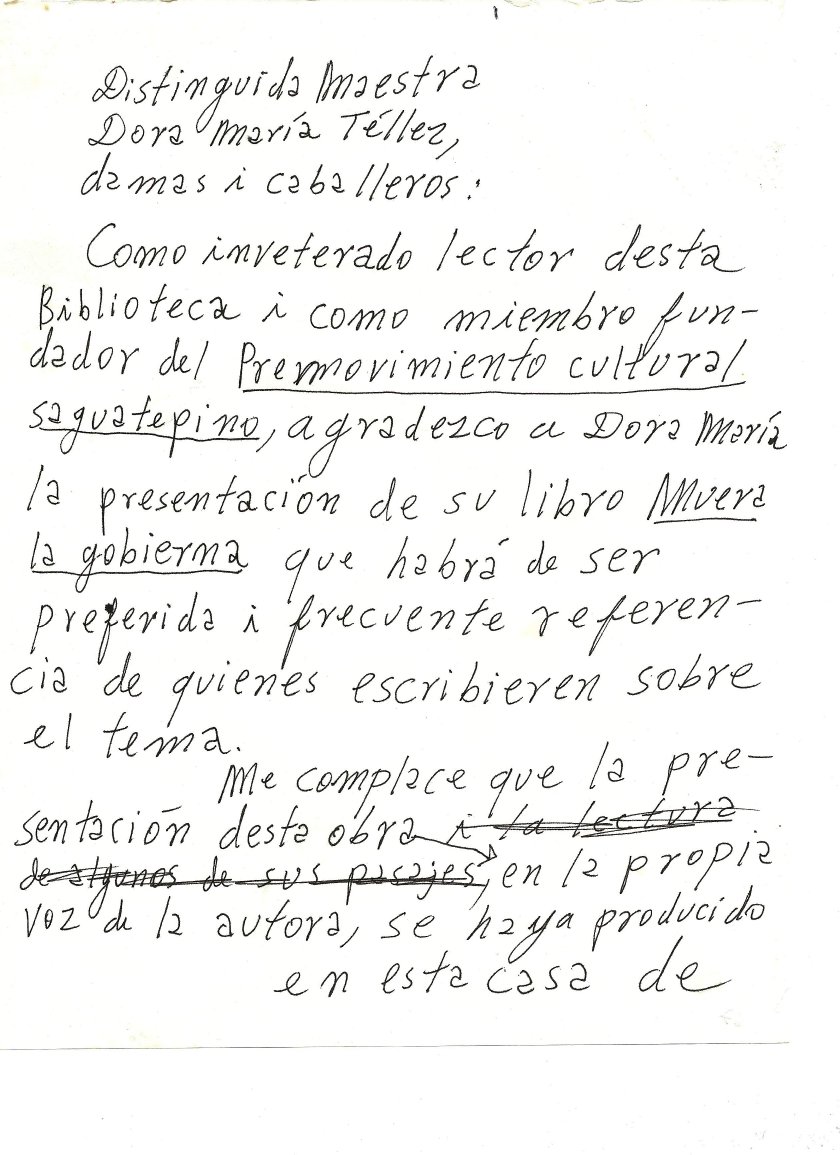 Distinguida Maestra
Dora María Téllez,
damas i caballeros:
Como inveterado lector desta
Biblioteca i como miembro fun-
dador del Premovimiento cultural
saguatepino, agradezco a Dora María
la presentación de su libro Muera
la gobierna que habrá de ser
preferida i frecuente referen-
cia de quienes escribieren sobre
el tema.
Me complace que la pre-
sentación desta obra i la lectura
de algunos de sus pasajes, en la propia
voz de la autora, se haya producido
en esta casa de